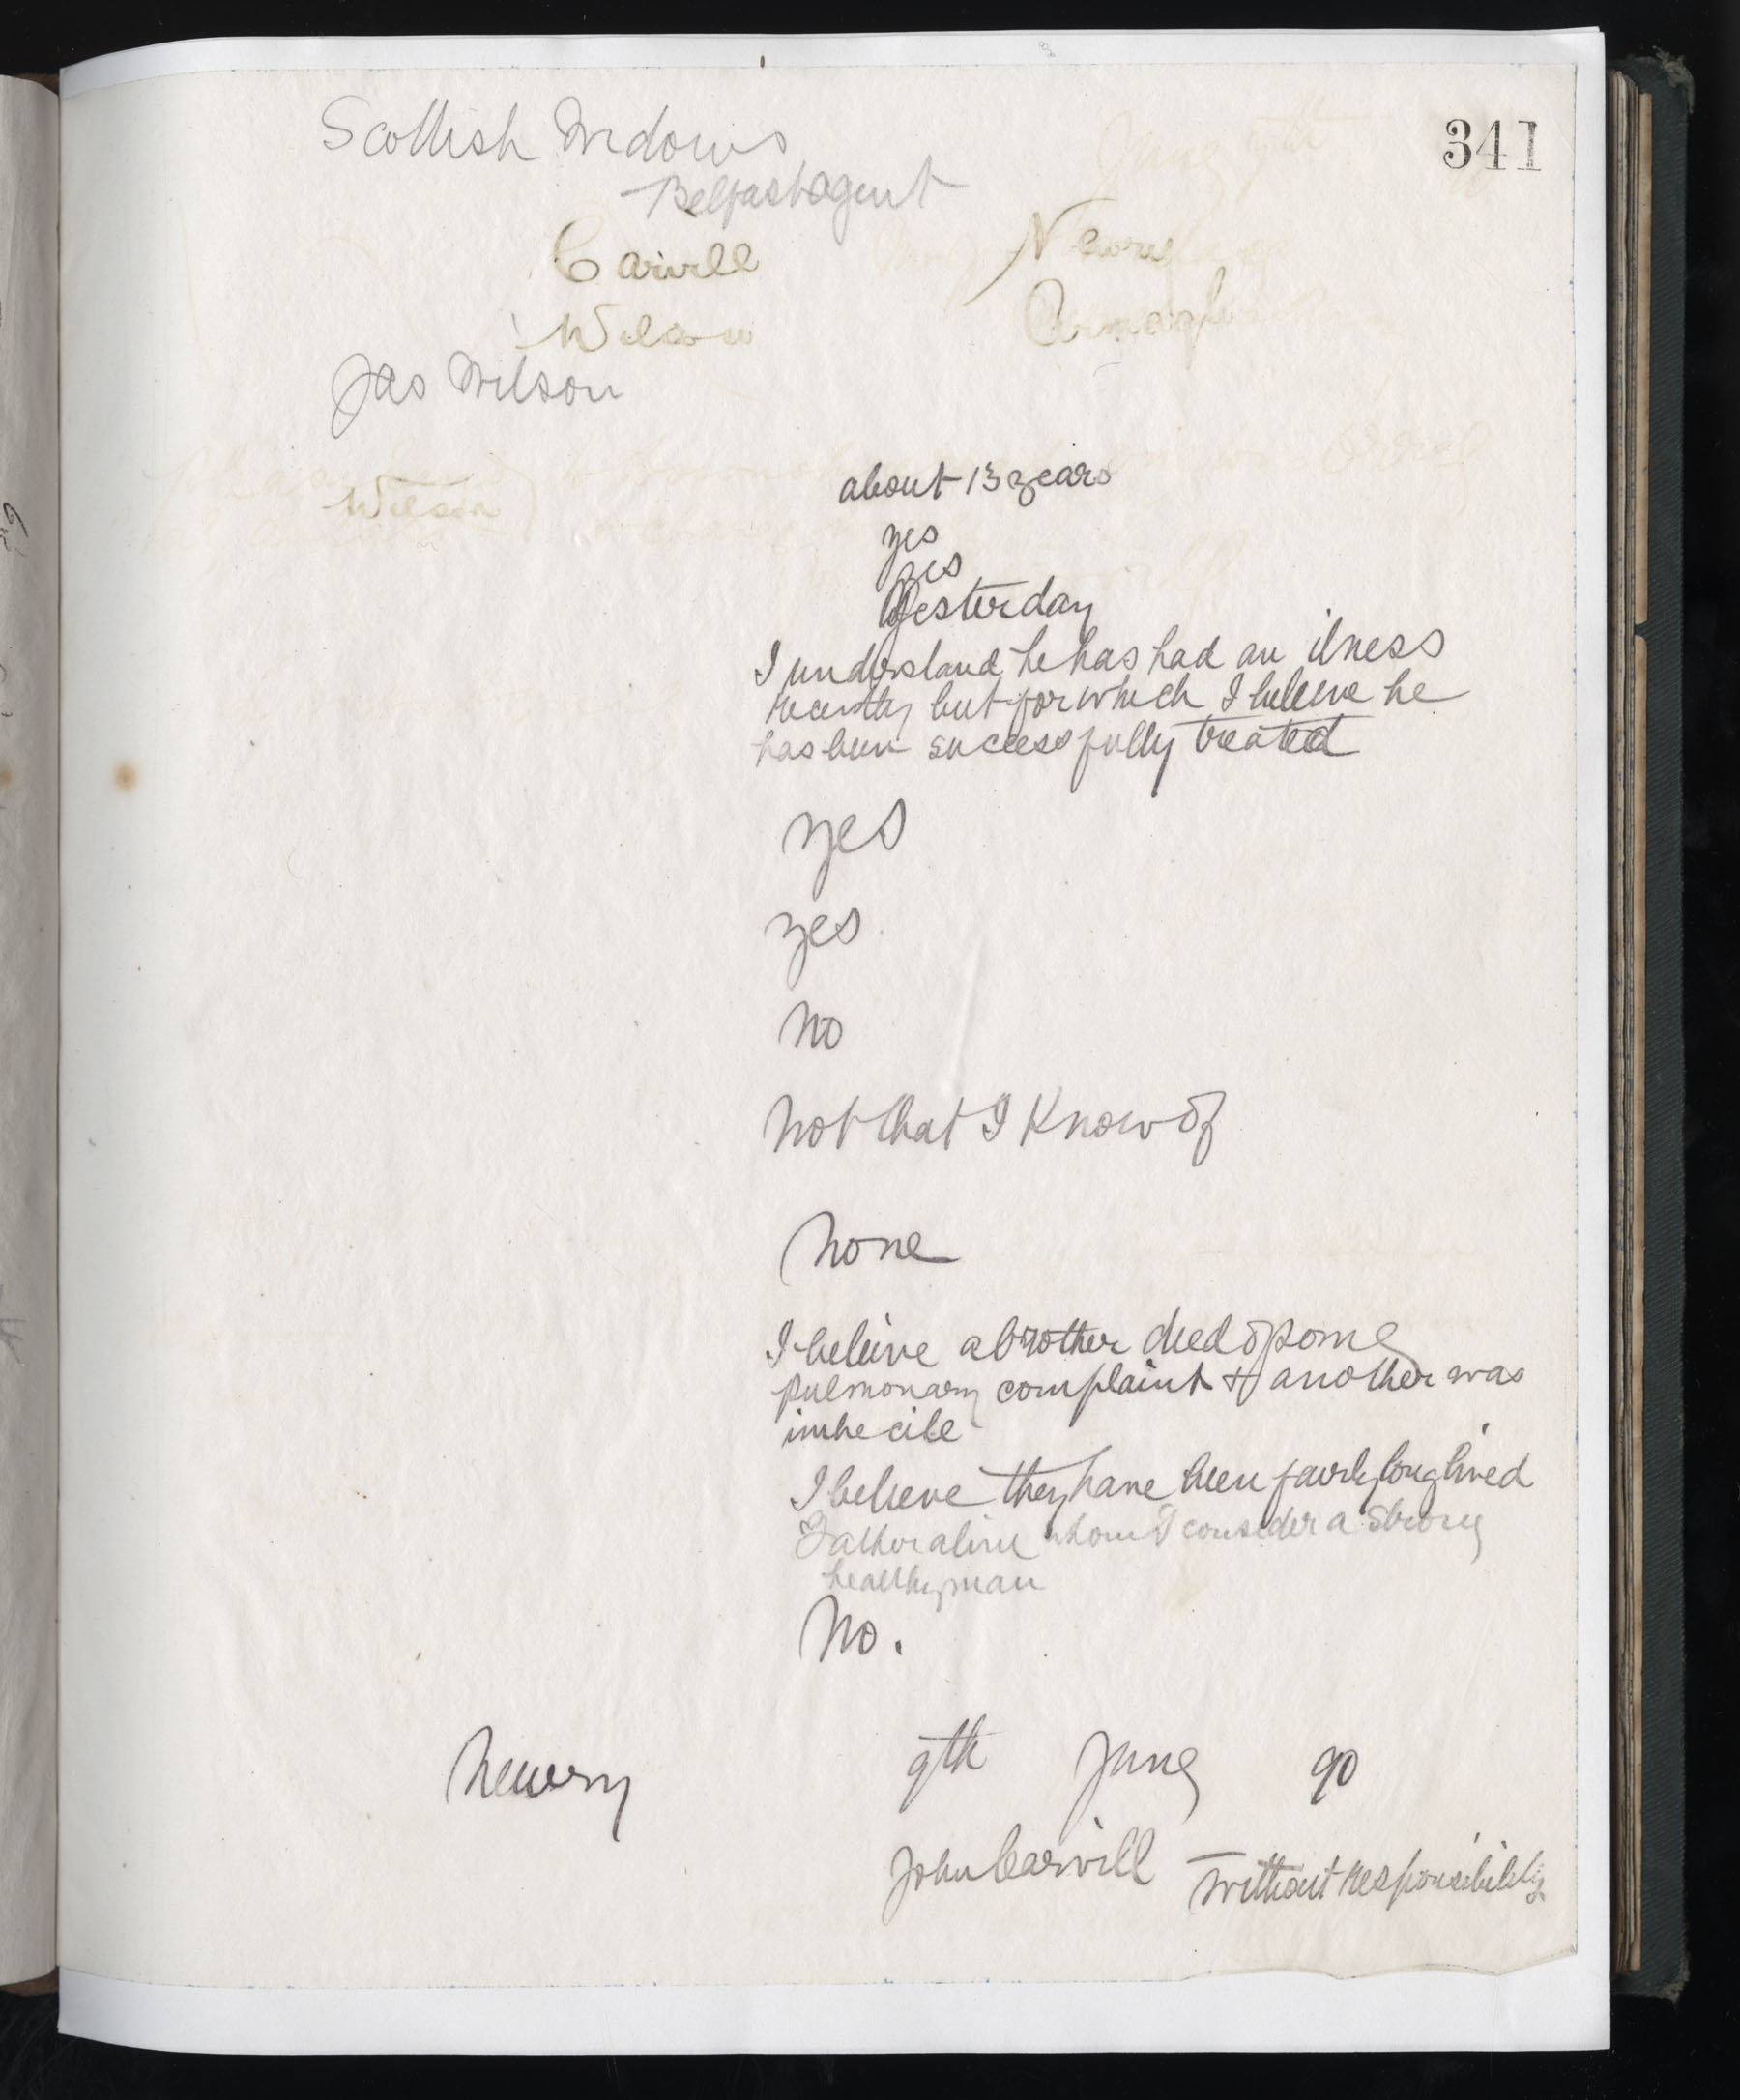 341
Scottish Widows
Belfast agent
Carvill Newry
Wilson Armagh
Jas Wilson
about 13 years
Wilson
yes
yes
yesterday
I understand he has had an ilness
recently but for which I beleive he
has been sucessfully treated
yes
yes
No
Not that I Know of
None
I beleive a brother died of some
pulmonary complaint & another was
imbecile
I beleive they have been fairly long lived
Father alive whom I consider a strong
healthy man
No.
Newry 9th Jany 90
John Carvill without responsibility